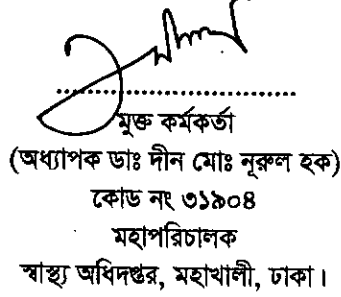 মুক্ত কর্মকর্তা
(অধ্যাপক ডাঃ দীন মোঃ নূরুল হক)
কোড নং ৩১৯০৪
মহাপরিচালক
স্বাস্থ্য অধিদপ্তর, মহাখালী, ঢাকা।